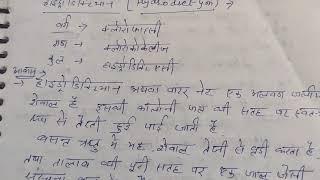 हाइड्रोडिक्टियान (Hydrodictyon)
वर्ग → क्लोरोफायसी
गण → क्लोरोकोकेल्स
कुल → हाइड्रोडिक्टिएसी
आवास →
→ हाइड्रोडिक्टियान अथवा वाटर नेट एक अलवण जलीय
शैवाल है। इसकी कॉलोनी जल की सतह पर स्वतंत्र
रूप से तैरती हुई पाई जाती है
बसन्त ऋतु में यह शैवाल तेजी से वृद्धि करता है
तथा तालाब की पूरी सतह पर एक जाल जैसी